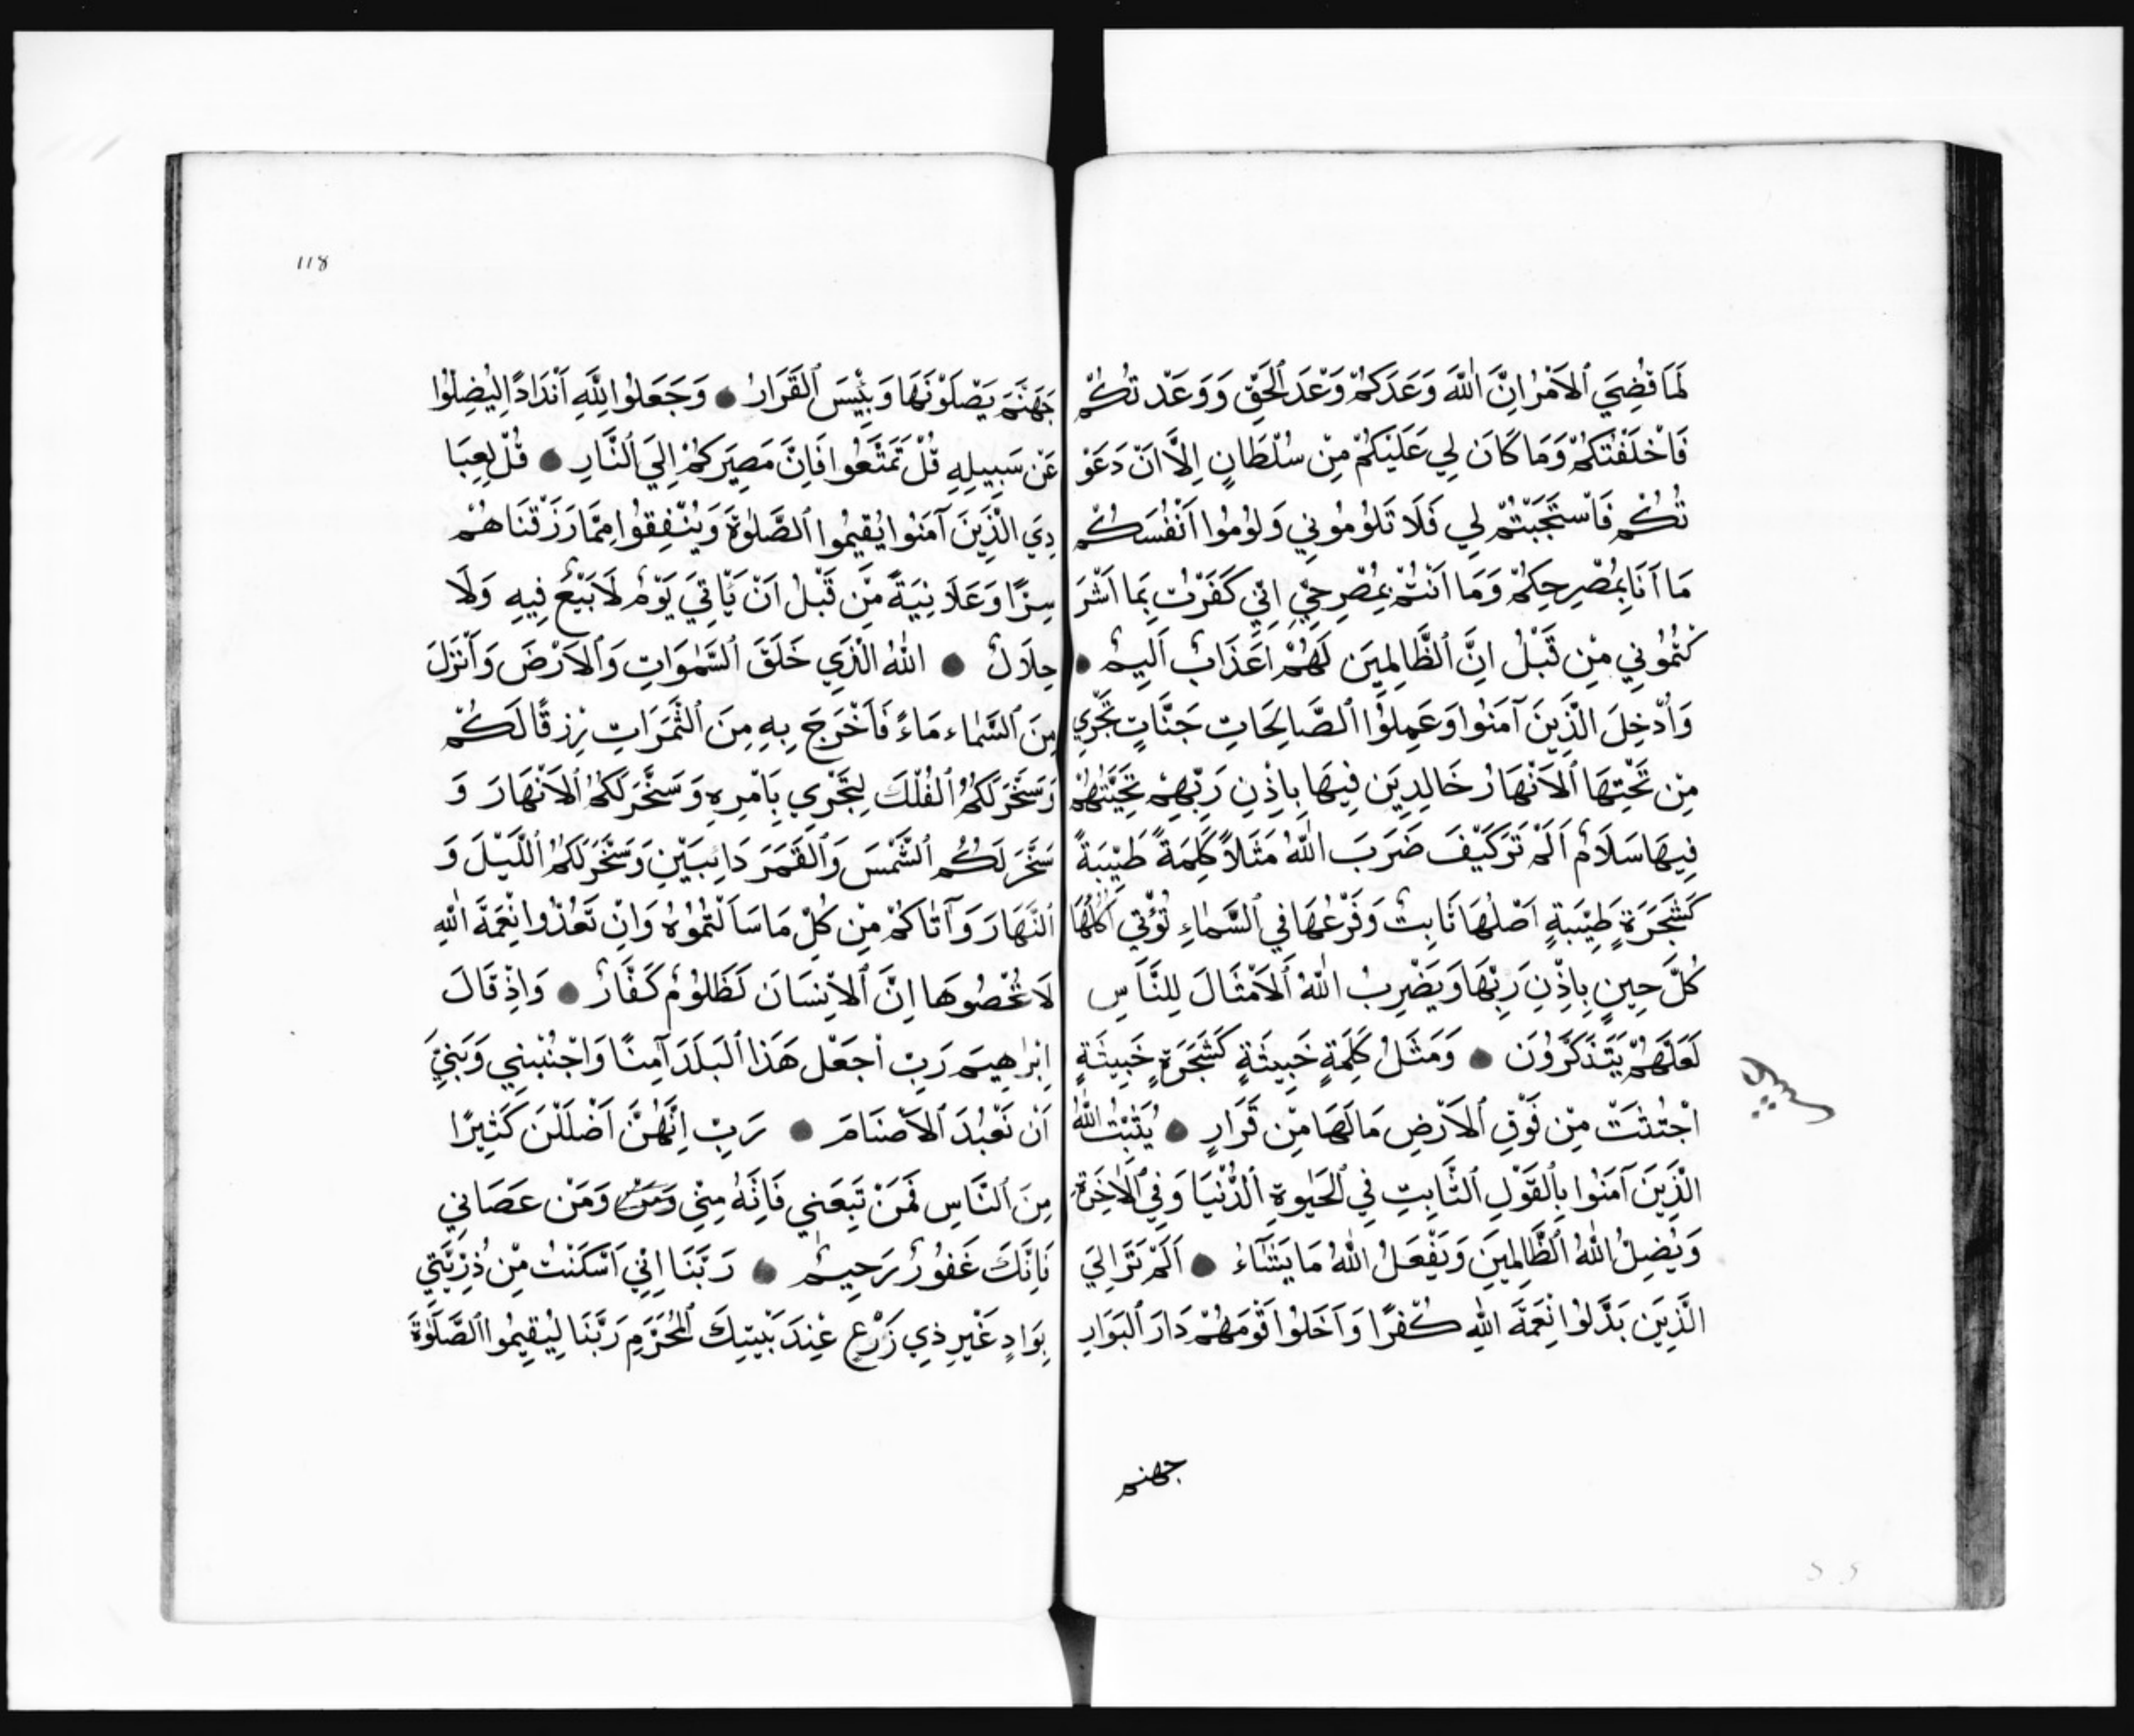 لَمَا قُضِيَ ٱلاَمْرُ اِنَّ اللّٰهَ وَعَدَكُمْ وَعْدَ ٱلحَقِّ وَوَعَدْتُكُمْ
فَاَخْلَفْتُكُمْ وَمَا كَانَ لِي عَلَيْكُمْ مِنْ سُلْطَانٍ اِلاَّ اَنْ دَعَوْ
تُكُمْ فَاَسْتَجَبْتُمْ لِي فَلَا تَلُومُونِي وَلُومُوا اَنْفُسَكُمْ
مَا اَنَا بِمُصْرِحِكُمْ وَمَا اَنْتُمْ بِمُصْرِخِيَّ اِنِّي كَفَرْتُ بِمَا اَشْرَ
كْتُمُونِي مِنْ قَبْلُ اِنَّ ٱلظَّالِمِينَ لَهُمْ عَذَابٌ اَلِيمٌ
وَاُدْخِلَ الَّذِينَ آمَنُوا وَعَمِلُوا ٱلصَّالِحَاتِ جَنَّاتٍ تَجْرِي
مِنْ تَحْتِهَا ٱلاَنْهَارُ خَالِدِينَ فِيهَا بِاِذْنِ رَبِّهِمْ تَحِيَّتُهُمْ
فِيهَا سَلَامٌ اَلَمْ تَرَ كَيْفَ ضَرَبَ اللّٰهُ مَثَلاً كَلِمَةً طَيِّبَةً
كَشَجَرَةٍ طَيِّبَةٍ اَصْلُهَا ثَابِتٌ وَفَرْعُهَا فِي ٱلسَّمَاءِ تُؤْتِي اُكُلَهَا
كُلَّ حِينٍ بِاِذْنِ رَبِّهَا وَيَضْرِبُ اللّٰهُ ٱلاَمْثَالَ لِلنَّاسِ
لَعَلَّهُمْ يَتَذَكَّرُونَ ● وَمَثَلُ كَلِمَةٍ خَبِيثَةٍ كَشَجَرَةٍ خَبِيثَةٍ
اجْتُثَتْ مِنْ فَوْقِ ٱلاَرْضِ مَا لَهَا مِنْ قَرَارٍ ● يُثَبِّتُ اللّٰهُ
الَّذِينَ آمَنُوا بِٱلقَوْلِ ٱلثَّابِتِ فِي ٱلحَيٰوةِ ٱلدُّنْيَا وَفِي ٱلاٰخِرَةِ
وَيُضِلُّ اللّٰهُ ٱلظَّالِمِينَ وَيَفْعَلُ اللّٰهُ مَا يَشَآءُ ● اَلَمْ تَرَ اِلَي
الَّذِينَ بَدَّلُوا نِعْمَةَ اللّٰهِ كُفْرًا وَاَحَلُوا قَوْمَهُمْ دَارَ ٱلبَوَارِ
جهنم
118
جَهَنَّمَ يَصْلَوْنَهَا وَبِئْسَ ٱلقَرَارُ ● وَجَعَلُوا لِلّٰهِ اَنْدَادًا لِيُضِلُّوا
عَنْ سَبِيلِهِ قُلْ تَمَتَّعُوا فَاِنَّ مَصِيرَكُمْ اِلَي ٱلنَّارِ ● قُلْ لِعِبَا
دِيَ الَّذِينَ آمَنُوا يُقِيمُوا ٱلصَّلٰوةَ وَيُنْفِقُوا مِمَّا رَزَقْنَاهُمْ
سِرًّا وَعَلَانِيَةً مِّنْ قَبْلُ اَنْ يَّاْتِيَ يَوْمٌ لَا بَيْعٌ فِيهِ وَلَا
خِلَالٌ ● اللّٰهُ الَّذِي خَلَقَ ٱلسَّمٰوَاتِ وَٱلاَرْضَ وَاَنْزَلَ
مِنَ ٱلسَّمَاءِ مَاءً فَاَخْرَجَ بِهِ مِنَ ٱلثَّمَرَاتِ رِزْقًا لَكُمْ
وَسَخَّرَ لَكُمُ ٱلفُلْكَ لِتَجْرِي بِاَمْرِهِ وَسَخَّرَ لَكُمُ ٱلاَنْهَارَ وَ
سَخَّرَ لَكُمُ ٱلشَّمْسَ وَٱلقَمَرَ دَائِبَيْنِ وَسَخَّرَ لَكُمُ ٱللَّيْلَ وَ
ٱلنَّهَارَ وَآتَاكُمْ مِنْ كُلِّ مَا سَاَلْتُمُوهُ وَاِنْ تَعُدُّوا نِعْمَةَ اللّٰهِ
لَا تُحْصُوهَا اِنَّ ٱلاِنْسَانَ لَظَلُومٌ كَفَّارٌ ● وَاِذْ قَالَ
اِبْرٰهِيمَ رَبِّ اجَعَلْ هَذَا ٱلبَلَدَ آمِنًا وَاجْنُبْنِي وَبَنِيَّ
اَنْ نَعْبُدَ ٱلاَصْنَامَ ● رَبِّ اِنَّهُنَّ اَضْلَلْنَ كَثِيرًا
مِنَ ٱلنَّاسِ فَمَنْ تَبِعَنِي فَاِنَّهُ مِنِّي وَمَنْ وَمَنْ عَصَانِي
فَاِنَّكَ غَفُورٌ رَحِيمٌ ● رَبَّنَا اِنِّي اَسْكَنْتُ مِنْ ذُرِّيَّتِي
بِوَادٍ غَيْرِ ذِي زَرْعٍ عِنْدَ بَيْتِكَ ٱلمُحَرَّمِ رَبَّنَا لِيُقِيمُوا ٱلصَّلَوٰةَ